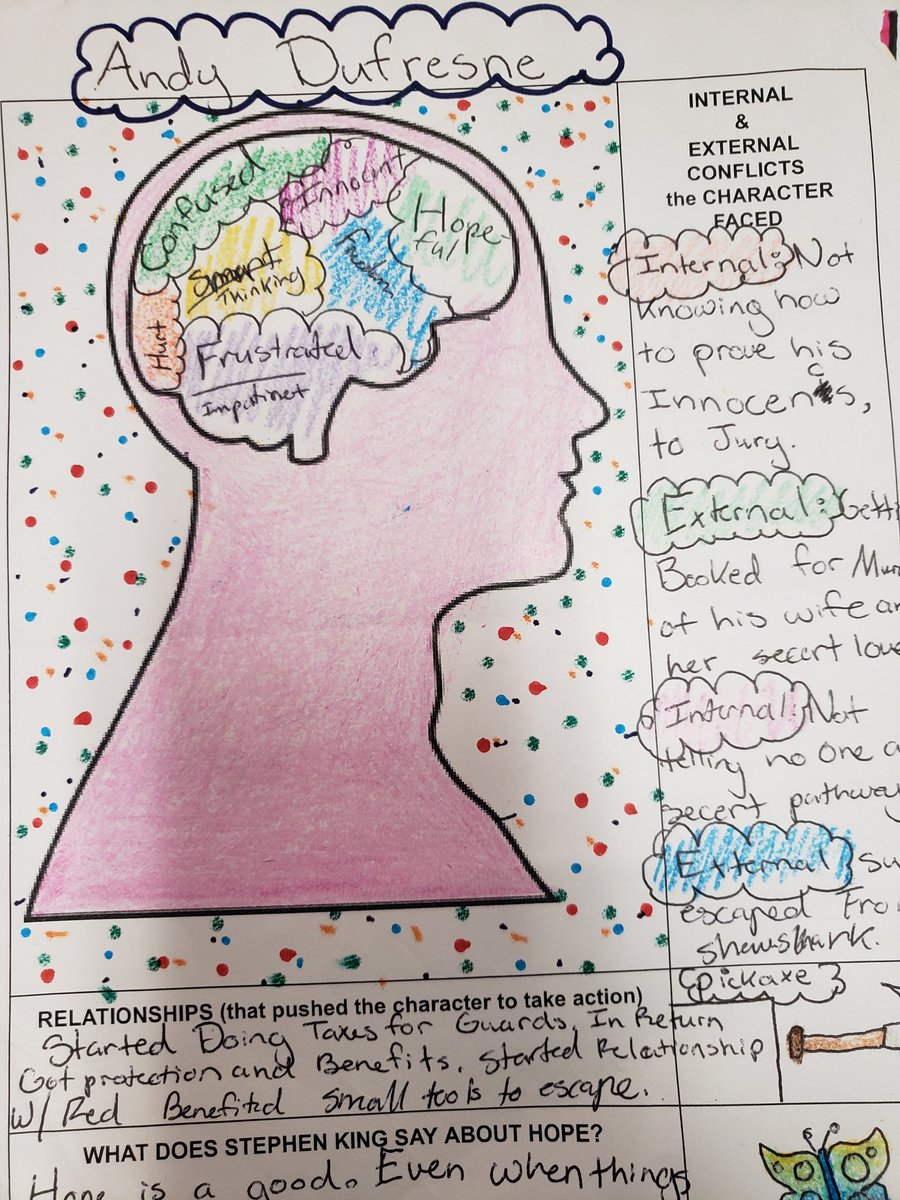 Andy Dufresne
Confused
Innocent
Hope-
ful
Smart
Thinking
Freedom
Hurt
Frustrated
Impatinet
INTERNAL
&
EXTERNAL
CONFLICTS
the CHARACTER
FACED
Internal: Not
Knowing how
to prove his
Innocencs,
to Jury.
External: Getti
Booked for Mur
of his wife an
her secert love
Internal: Not
telling no one a
secert pathway
External: su
escaped Fro
shawshank.
pickaxe
RELATIONSHIPS (that pushed the character to take action)
Started Doing Taxes for Guards, In Return
Got protection and Benefits. Started Relationship
w/ Red Benefited small tools to escape.
WHAT DOES STEPHEN KING SAY ABOUT HOPE?
Hope is a good. Even when things